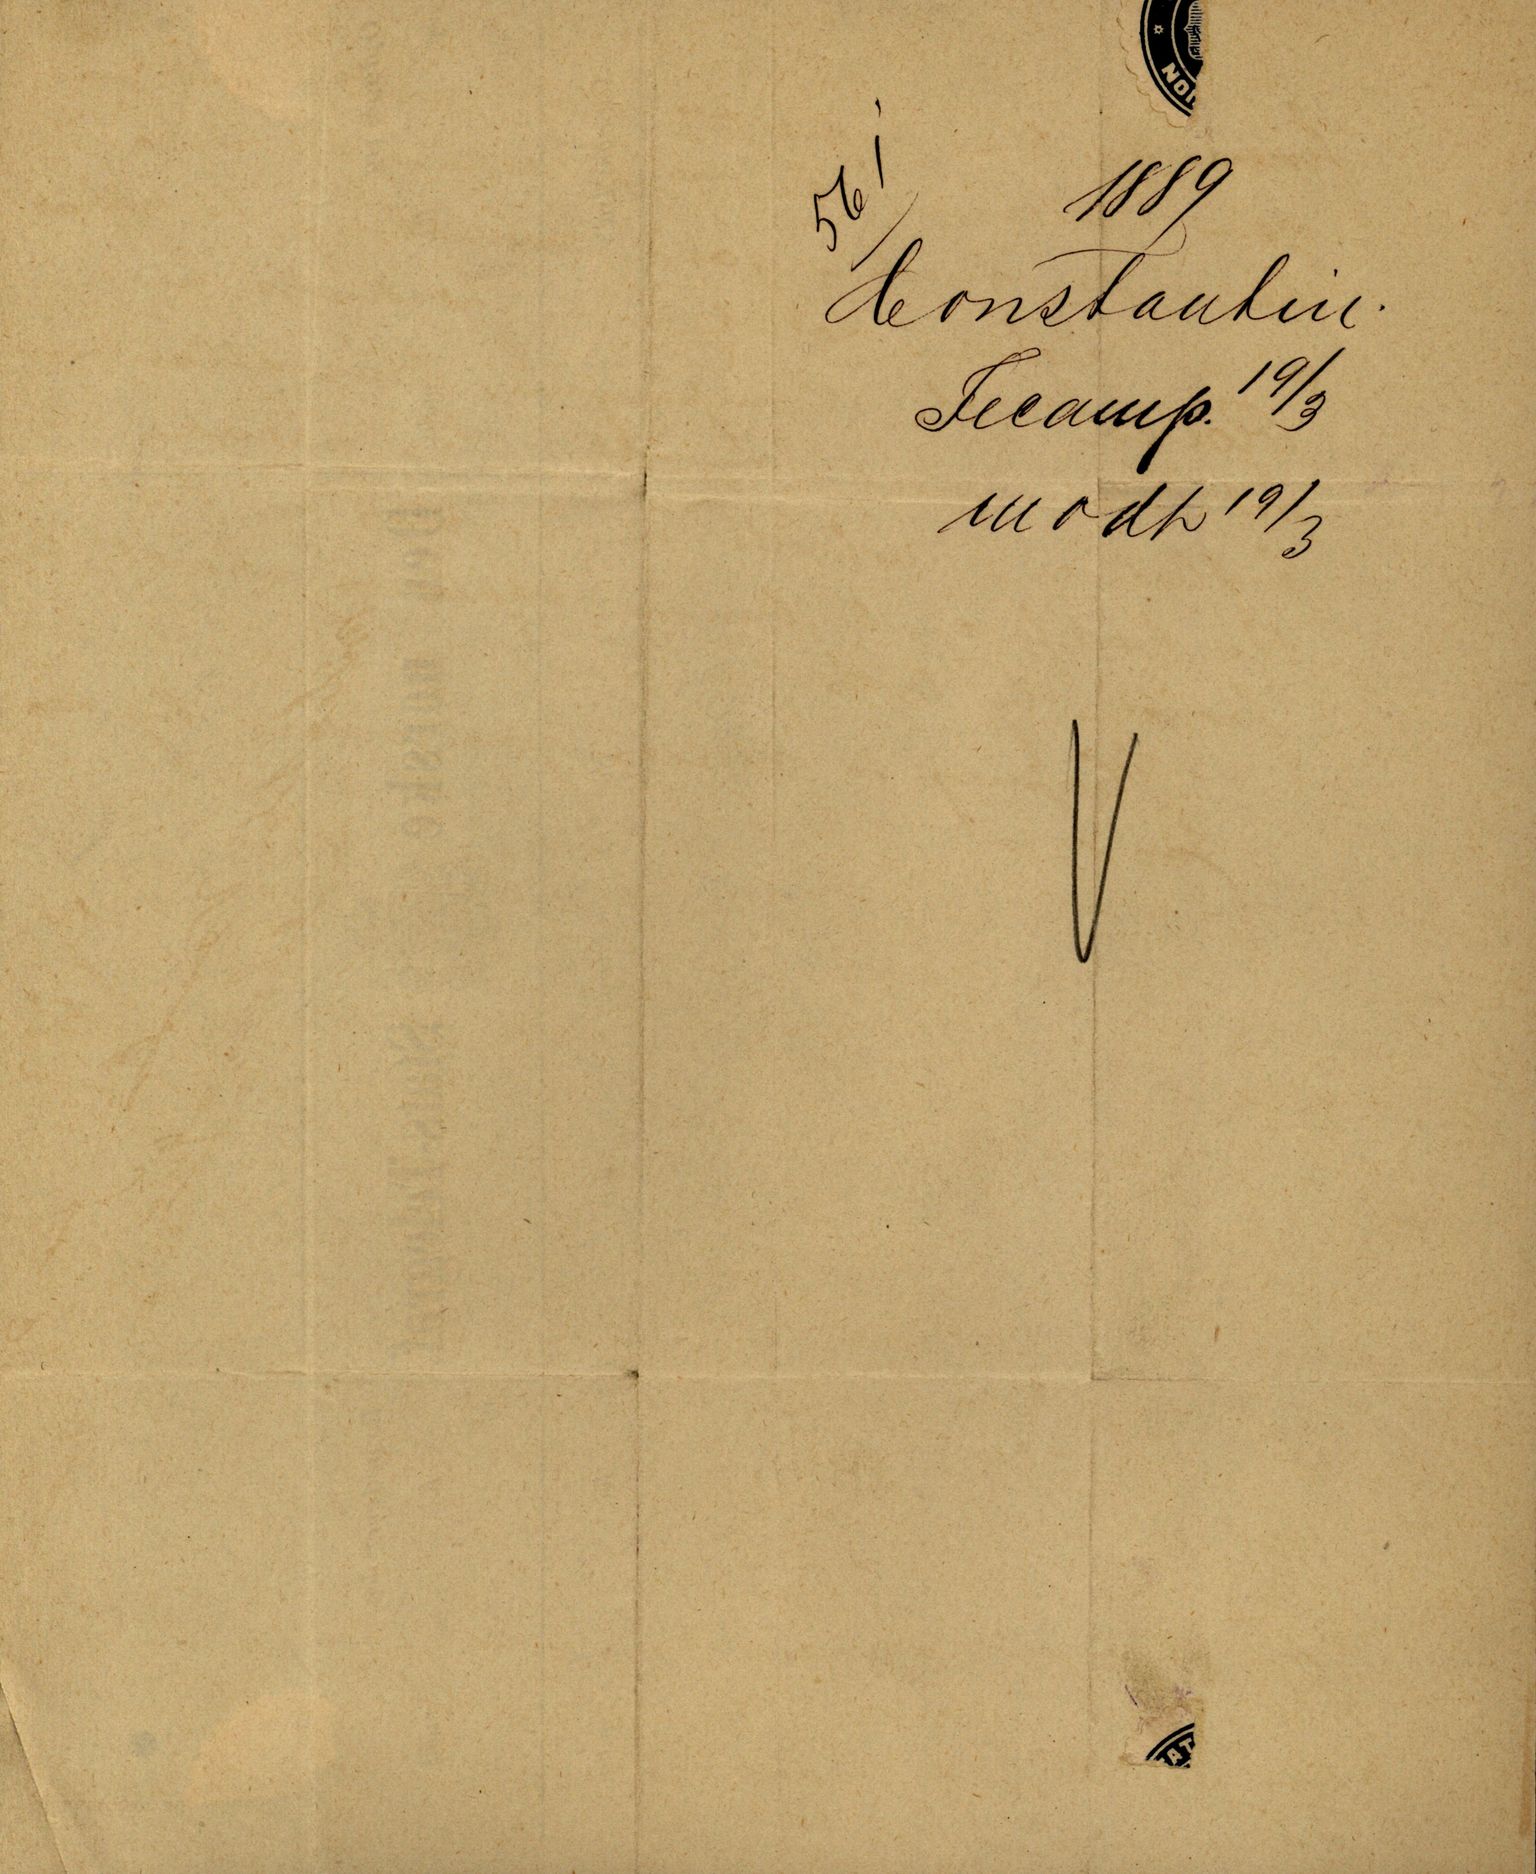 NOR
56 /
1889
Constantin.
Fecamp. 19/3
modt 19/3
V
AT